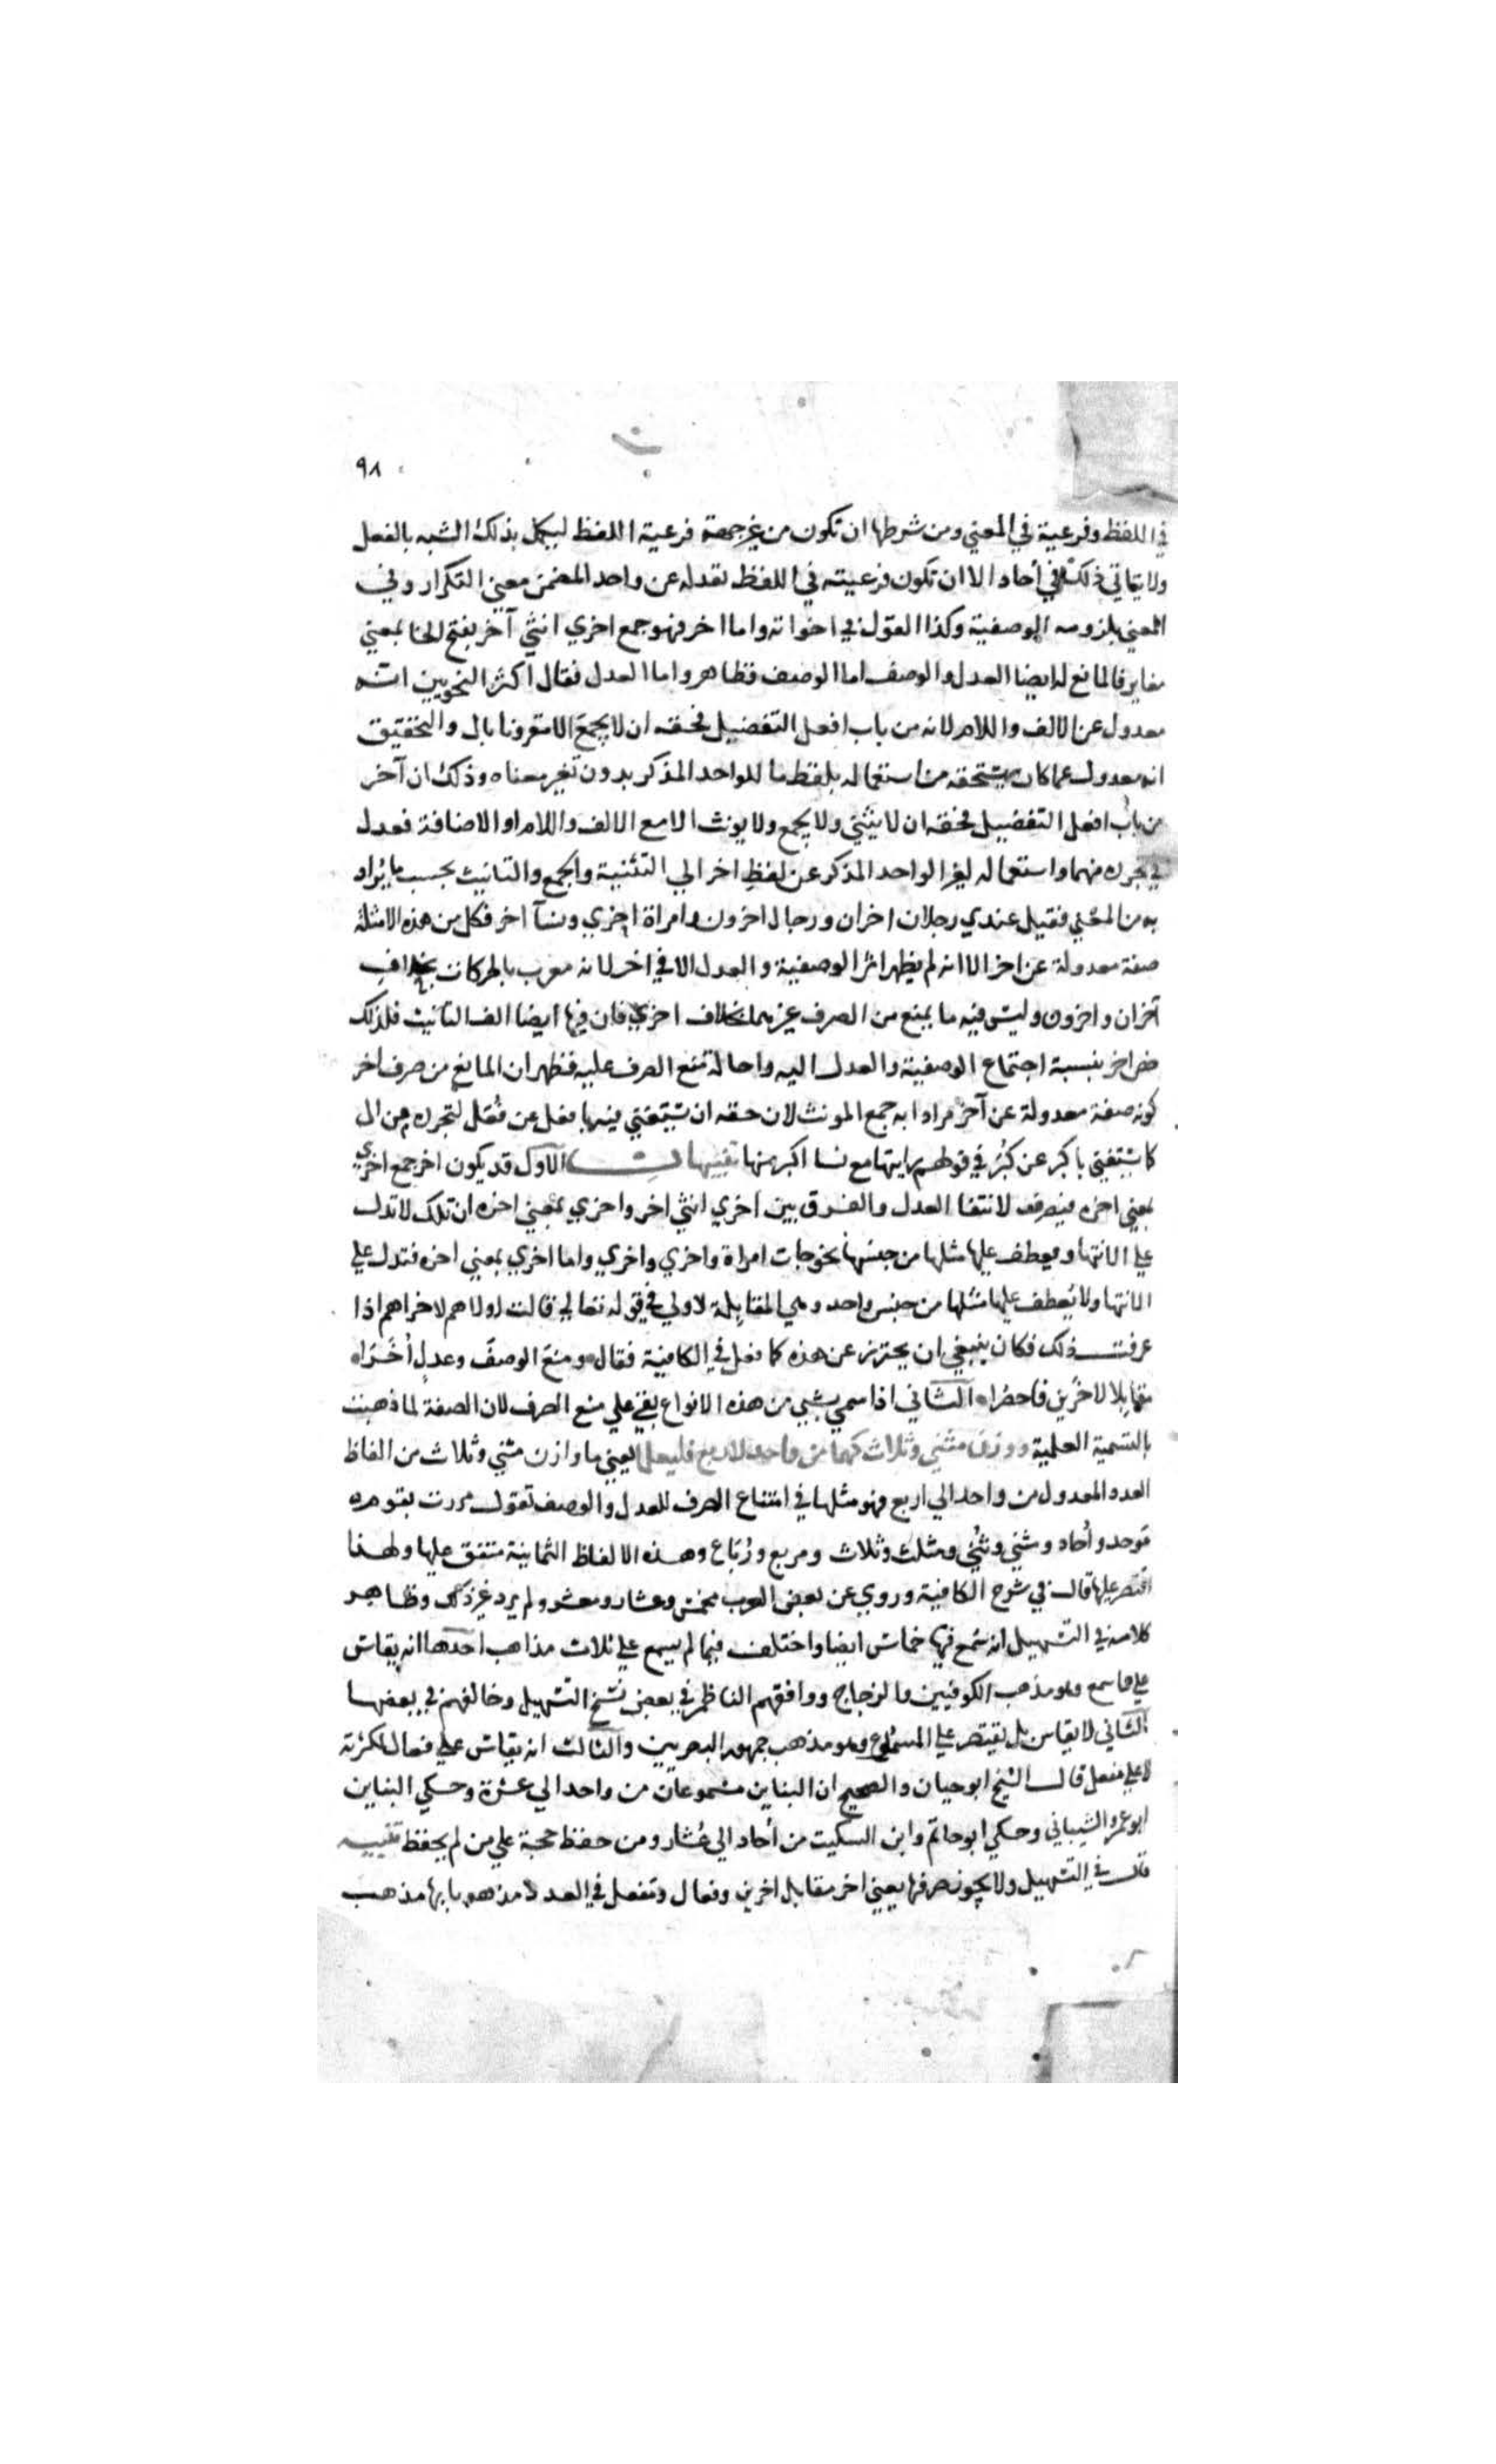 ٩٨
في اللفظ وفرعية في المعني ومن شرطها ان تكون من غير جهة فرعية اللفظ ليكمل بذلك الشبه بالفعل
ولا يتاتي ذلك في أحاد الا ان تكون فرعيته في اللفظ بعدله عن واحد المضمن معني التكرار وفي
المعني بلزومه الوصفية وكذا القول في اخواته واما اخر فهو جمع اخري انثي آخر بفتح الخا بمعني
مغاير فالمانع له ايضا العدل والوصف اما الوصف فظاهر واما العدل فقال اكثر النحويين انه
معدول عن الالف واللام لانه من باب افعل التفضيل فحقه ان لا يجمع الا مقرونا بال والتحقيق
انه معدول عما كان يستحقه من استعماله بلفظ ما للواحد المذكر بدون تغير معناه وذلك ان آخر
من باب افعل التفضيل فحقه ان لا يثني ولا يجمع ولا يونث الا مع الالف واللام او الاضافة فعدل
في تجرده منهما واستعماله لغير الواحد المذكر عن لفظ اخر الي التثنية والجمع والتانيث بحسب ما يراد
به من المعني فقيل عندي رجلان اخران ورجال اخرون وامراة اخري ونسآ اخر فكل من هذه الامثلة
صفة معدولة عن اخر الا انه لم يظهر اثر الوصفية والعدل الا في اخر لانه معرب بالحركات بخلاف
آخران واخرون وليس فيه ما يمنع من الصرف غيرهما بخلاف اخري فان فيها ايضا الف التانيث فلذلك
خص اخر بنسبة اجتماع الوصفية والعدل اليه واحالة منع الصرف عليه فظهر ان المانع من صرف اخر
كونه صفة معدولة عن آخر مرادا به جمع المونث لان حقه ان تستغني فيها بفعل عن فُعَل لتجرده من ال
كما يستغني باكبر عن كُبَر في قولهم رايتها مع نسا اكبر منها تنبيهات الاول قد يكون اخر جمع اخري
بمعني اخره فينصرف لانتفا العدل والفرق بين اخري انثي اخر واخري بمعني اخره ان تلك لا تدل
علي الانتها ويعطف عليها مثلها من جنسها نحو جات امراة واخري واخري واما اخري بمعني اخره فتدل علي
الانتها ولا يعطف عليها مثلها من جنس واحد وهي المقابلة لاولي في قوله تعالي قالت اولاهم لاخراهم اذا
عرفت ذلك فكان ينبغي ان يحترز عن هذه كما فعل في الكافية فقال ومنع الوصف وعدل أُخَرَا
مقابلا لاخرين فاحضرا الثاني اذا سمي بشي من هذه الانواع بقي علي منع الصرف لان الصفة لما ذهبت
بالتسمية العلمية ووزن مثني وثلاث كهما من واحد لاربع فليعلما يعني ما وازن مثني وثلاث من الفاظ
العدد المعدول من واحد الي اربع فهو مثلها في امتناع الصرف للعدل والوصف تقول مررت بقوم
موحد وأحاد ومثني وثُني ومثلث وثلاث ومربع ورُباع وهذه الالفاظ الثمانية متفق عليها ولهذا
اقتصر عليها قال في شرح الكافية وروي عن بعض العرب مخمس وعشار ومعشر ولم يرد غير ذلك وظاهر
كلامه في التسهيل انه سمع فيها خماس ايضا واختلف فيما لم يسمع علي ثلاث مذاهب احدها انه يقاس
علي ما سمع وهو مذهب الكوفيين والزجاج ووافقهم الناظم في بعض نسخ التسهيل وخالفهم في بعضها
الثاني لا يقاس بل يقتصر علي المسموع وهو مذهب جمهور البصريين والثالث انه يقاس علي فعال لكثرته
لا علي مفعل قال الشيخ ابو حيان والصحيح ان البناين مسموعان من واحد الي عشرة وحكي البناين
ابو عمرو الشيباني وحكي ابو حاتم وابن السكيت من أحاد الي عُشار ومن حفظ حجة علي من لم يحفظ تنبيه
قال في التسهيل ولا يجوز صرفها يعني اخر مقابل اخرين وفعال ومفعل في العدد مذهوبا بها مذهب